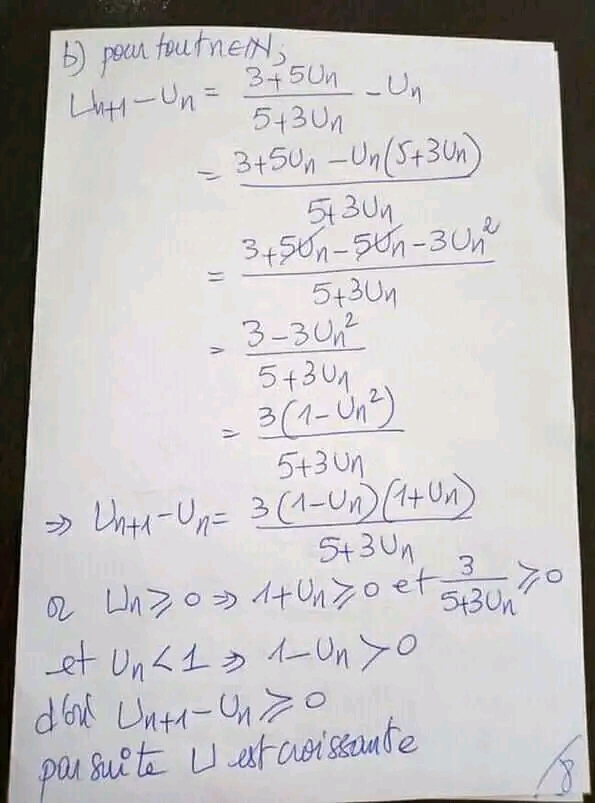 b) pour tout n∈ℕ;
Un+1 − Un = (3+5Un)/(5+3Un) − Un
= (3+5Un − Un(5+3Un))/(5+3Un)
= (3+5Un − 5Un − 3Un²)/(5+3Un)
= (3−3Un²)/(5+3Un)
= 3(1−Un²)/(5+3Un)
⇒ Un+1 − Un = 3(1−Un)(1+Un)/(5+3Un)
or Un ⩾ 0 ⇒ 1+Un ⩾ 0 et 3/(5+3Un) ⩾ 0
et Un < 1 ⇒ 1−Un > 0
d'où Un+1 − Un ⩾ 0
par suite U est croissante
8